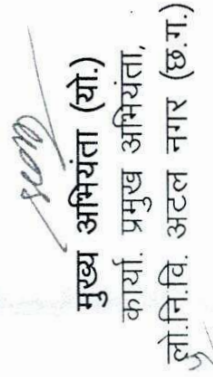 मुख्य अभियंता (यो.)
कार्या. प्रमुख अभियंता,
लो.नि.वि. अटल नगर (छ.ग.)